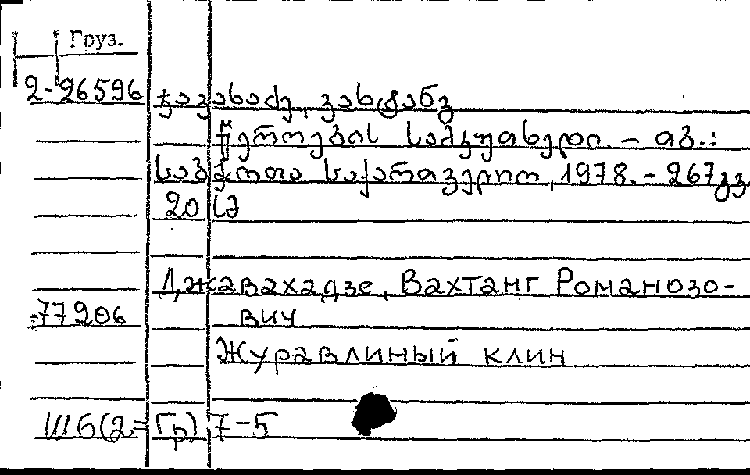 Груз.
2-26596 ჯავახაძე, ვახტანგ
წეროების სამკუთხედი. – თბ.:
საბჭოთა საქართველო, 1978. – 267გვ
20
Джавахадзе, Вахтанг Романозо-
77206 вич
Журавлиный клин
Ш6(2=Гр)7-5